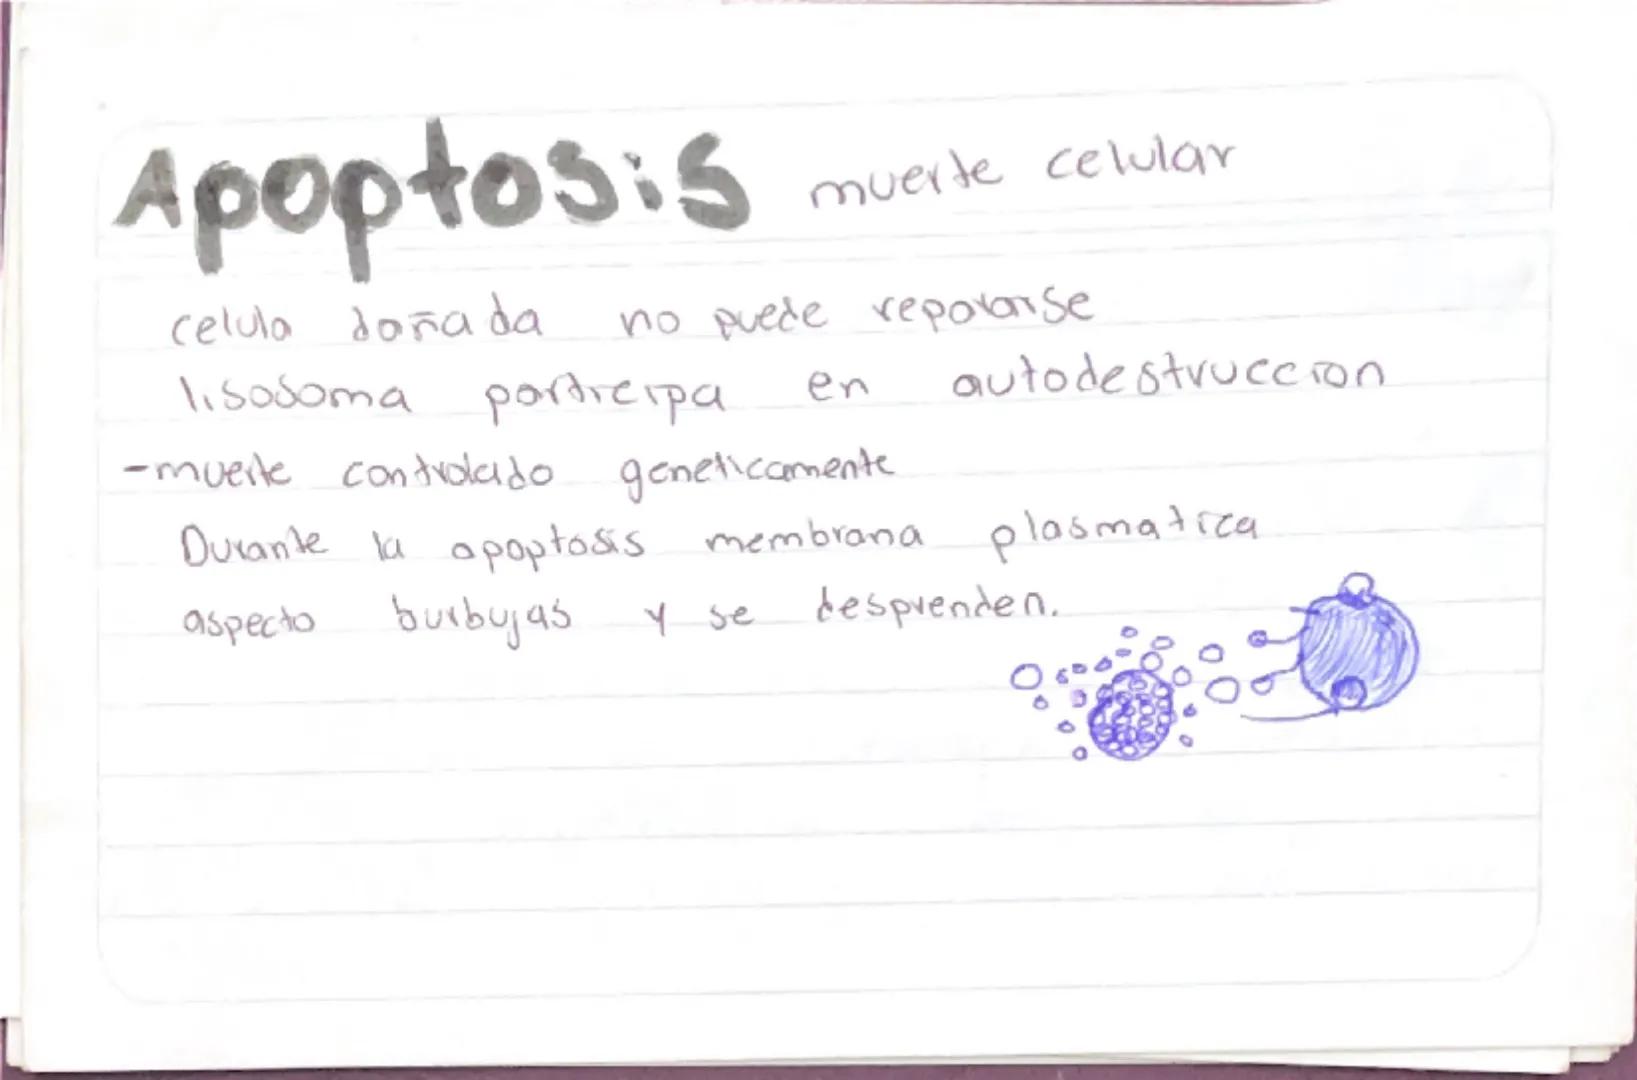 Apoptosis muerte celular
celula dañada no puede repararse
lisosoma participa en autodestruccion
-muerte controlado geneticamente
Durante la apoptosis membrana plasmatica
aspecto burbujas y se desprenden.